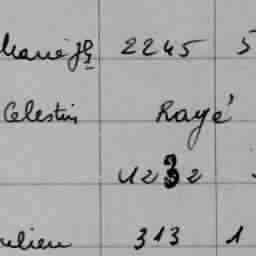 Marie Jh 2245 5
Celestin Rayé
1232
313 1